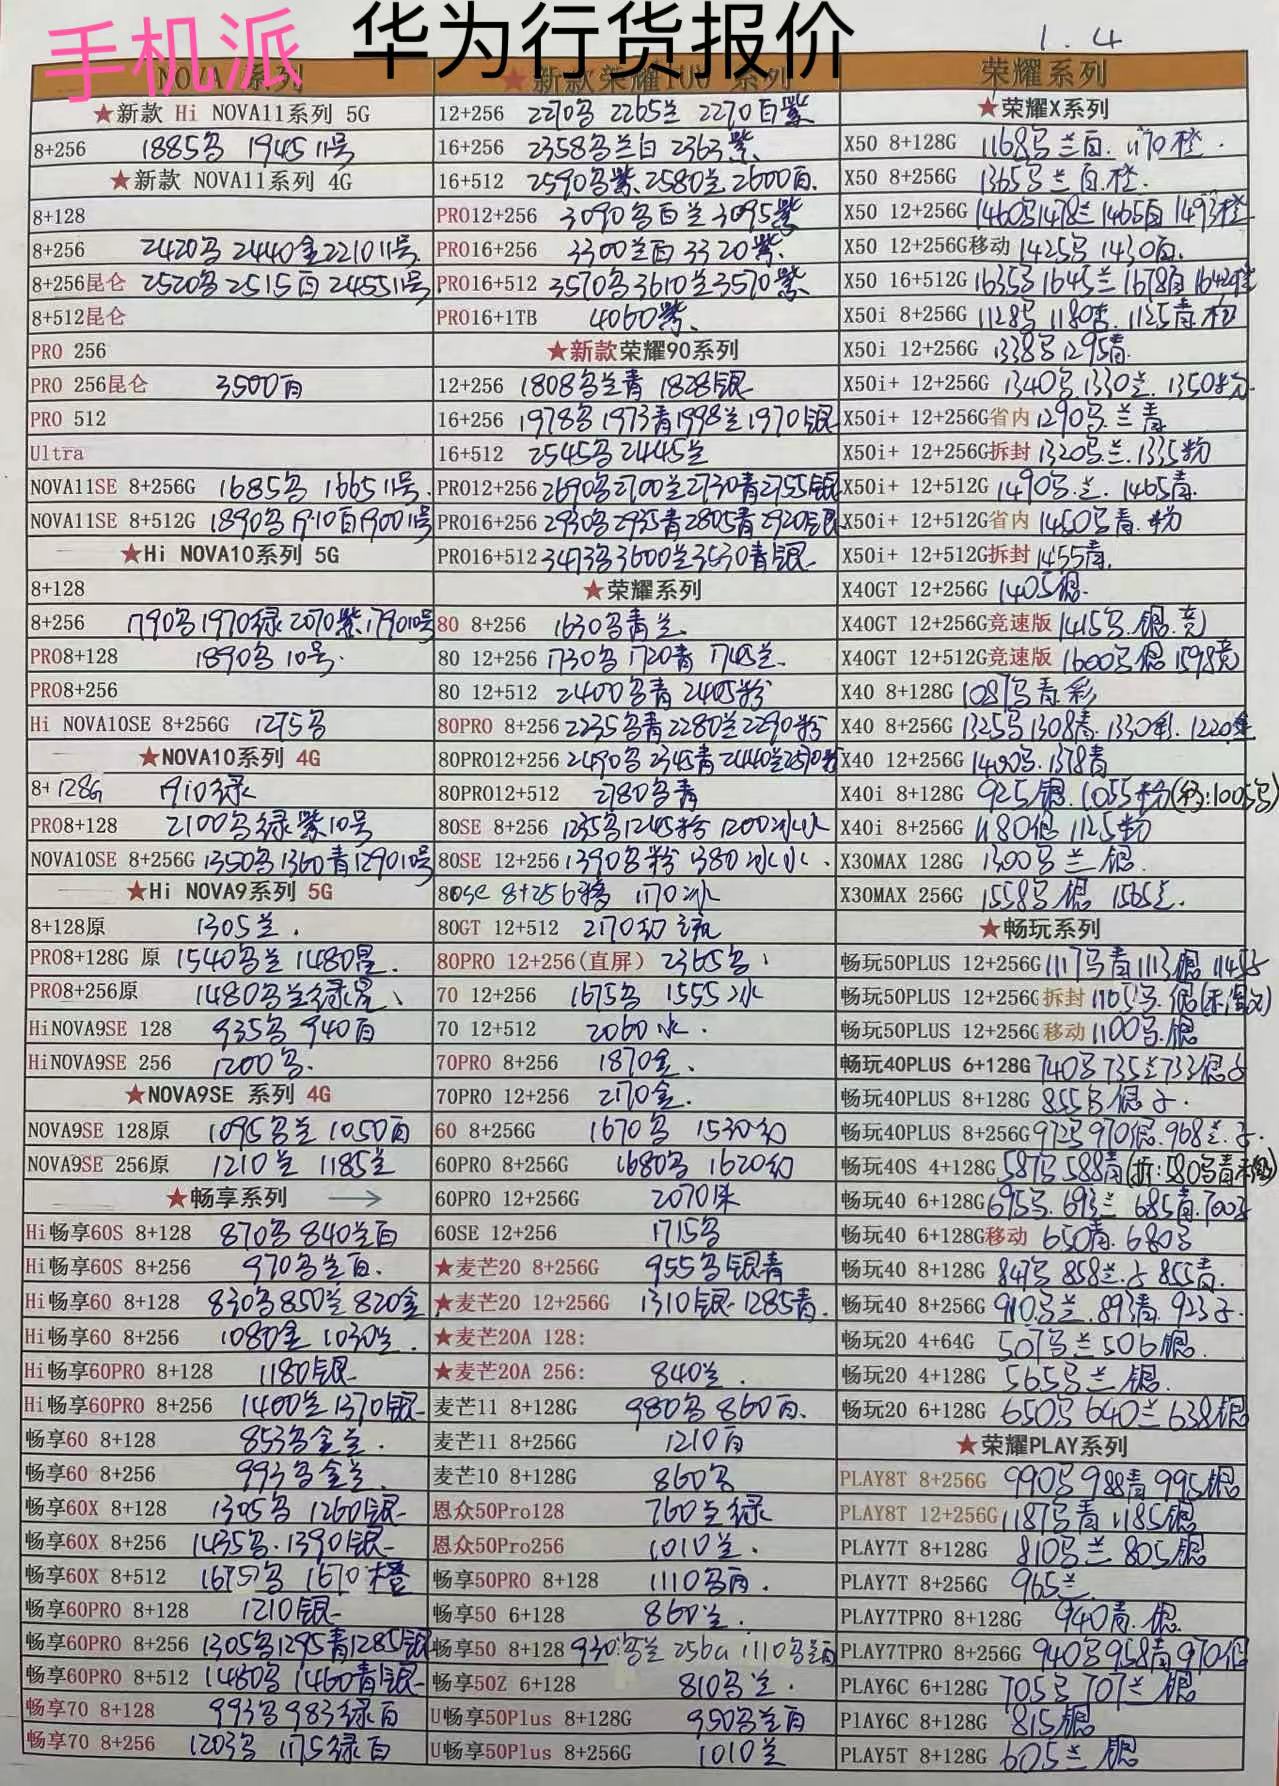 手机派 华为行货报价 1.4
NOVA 系列
★新款 Hi NOVA11系列 5G
8+256 1885多 1945 11号
★新款 NOVA11系列 4G
8+128
8+256 2420多 2440金 2210 11号
8+256昆仑 2520多 2515百 2455 11号
8+512昆仑
PRO 256
PRO 256昆仑 3500百
PRO 512
Ultra
NOVA11SE 8+256G 1685多 1665 11号
NOVA11SE 8+512G 1890多 1910百 1900 11号
★Hi NOVA10系列 5G
8+128
8+256 1790多 1970绿 2070紫 1790 10号
PRO8+128 1890多 10号
PRO8+256
Hi NOVA10SE 8+256G 1275多
★NOVA10系列 4G
8+128G 1910绿
PRO8+128 2100多绿紫10号
NOVA10SE 8+256G 1350多 1360青 1290 10号
★Hi NOVA9系列 5G
8+128原 1305兰
PRO8+128G 原 1540多兰 1480星
PRO8+256原 1480多兰绿星
HiNOVA9SE 128 935多 940百
HiNOVA9SE 256 1200多
★NOVA9SE 系列 4G
NOVA9SE 128原 1095多兰 1050百
NOVA9SE 256原 1210兰 1185兰
★畅享系列
Hi畅享60S 8+128 870多 840兰百
Hi畅享60S 8+256 970多兰百
Hi畅享60 8+128 830多 850兰 820金
Hi畅享60 8+256 1080金 1030兰
Hi畅享60PRO 8+128 1180银
Hi畅享60PRO 8+256 1400兰 1370银
畅享60 8+128 853多金兰
畅享60 8+256 993多金兰
畅享60X 8+128 1305多 1260银
畅享60X 8+256 1435多 1390银
畅享60X 8+512 多 1670橙
畅享60PRO 8+128 1210银
畅享60PRO 8+256 1305多 1295青 1285银
畅享60PRO 8+512 1480多 1460青银
畅享70 8+128 993多 983绿百
畅享70 8+256 1203多 1175绿百
★新款荣耀100 系列
12+256 2270多 2265兰 2270百紫
16+256 2358多兰白 2363紫
16+512 2590多紫 2580兰 2600百
PRO12+256 3090多百兰 3095紫
PRO16+256 3300兰百 3320紫
PRO16+512 3570多 3610兰 3570紫
PRO16+1TB 4060紫
★新款荣耀90系列
12+256 1808多兰青 1828银
16+256 1978多 1973青 1998兰 1970银
16+512 2545多 2445兰
PRO12+256 2690多 2700兰 2730青 2755银
PRO16+256 2930多 2935青 2805青 2920银
PRO16+512 3473多 3600兰 3530青银
★荣耀系列
80 8+256 1630多青兰
80 12+256 1730多 1720青 1745兰
80 12+512 2400多青 2405粉
80PRO 8+256 2235多青 2280兰 2290粉
80PRO12+256 2490多 2345青 2440兰 2570粉
80PRO12+512 2780多青
80SE 8+256 1235多 1245粉 1200冰水
80SE 12+256 1390多粉 1380冰水
80SE 8+256 1170冰
80GT 12+512 2170幻
80PRO 12+256(直屏) 2365多
70 12+256 1675多 1555冰
70 12+512 2060水
70PRO 8+256 1870金
70PRO 12+256 2170金
60 8+256G 1670多 1530幻
60PRO 8+256G 1680多 1620幻
60PRO 12+256G 2070
60SE 12+256 1715多
★麦芒20 8+256G 955多银青
★麦芒20 12+256G 1310银 1285青
★麦芒20A 128:
★麦芒20A 256: 840兰
麦芒11 8+128G 980多 860百
麦芒11 8+256G 1210百
麦芒10 8+128G 860多
恩众50Pro128 760兰绿
恩众50Pro256 1010兰
畅享50PRO 8+128 1110多百
畅享50 6+128 860兰
畅享50 8+128 930多兰 256G 1110多兰百
畅享50Z 6+128 810多兰
U畅享50Plus 8+128G 950多兰百
U畅享50Plus 8+256G 1010兰
荣耀系列
★荣耀X系列
X50 8+128G 1168多兰百 1170橙
X50 8+256G 1365多兰百橙
X50 12+256G 1460多 1478兰 1465百 1493橙
X50 12+256G移动 1425多 1430百
X50 16+512G 1635多 1645兰 1678百 1642橙
X50i 8+256G 1128多 1180杏 1125青粉
X50i 12+256G 1338多 1295青
X50i+ 12+256G 1340多 1330兰 1350粉
X50i+ 12+256G省内 1290多兰青
X50i+ 12+256G拆封 1320多兰 1335粉
X50i+ 12+512G 1490多兰 1465青
X50i+ 12+512G省内 1450多青粉
X50i+ 12+512G拆封 1455青
X40GT 12+256G 1405银
X40GT 12+256G竞速版 1415多银竞
X40GT 12+512G竞速版 1600多银 1598竞
X40 8+128G 1087多青彩
X40 8+256G 1325多 1308青 1330彩 1220墨
X40 12+256G 1400多 1378青
X40i 8+128G 925银 1055粉 1005多
X40i 8+256G 1180银 1125粉
X30MAX 128G 1300多兰银
X30MAX 256G 1558多银 1565兰
★畅玩系列
畅玩50PLUS 12+256G 1117多青 1113银
畅玩50PLUS 12+256G拆封 1105多银
畅玩50PLUS 12+256G移动 1100多银
畅玩40PLUS 6+128G 740多 735兰 733银子
畅玩40PLUS 8+128G 855多银子
畅玩40PLUS 8+256G 972多 970银 968兰子
畅玩40S 4+128G 587多 588青
畅玩40 6+128G 695多 693兰 685青 700子
畅玩40 6+128G移动 650青 680多
畅玩40 8+128G 847多 858兰子 855青
畅玩40 8+256G 910多兰 893青 923子
畅玩20 4+64G 507多兰 506银
畅玩20 4+128G 565多兰银
畅玩20 6+128G 650多 640兰 638银
★荣耀PLAY系列
PLAY8T 8+256G 990多 988青 995银
PLAY8T 12+256G 1187多青 1185银
PLAY7T 8+128G 810多兰 805银
PLAY7T 8+256G 965兰
PLAY7TPRO 8+128G 940青银
PLAY7TPRO 8+256G 940多 958青 970银
PLAY6C 6+128G 705多 707兰银
PlAY6C 8+128G 815银
PLAY5T 8+128G 605兰银